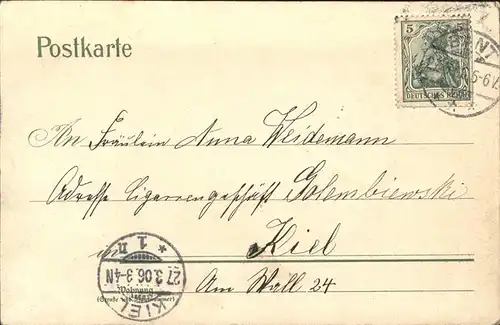 Postkarte
5 5
DEUTSCHES REICH
5-6 N.
An Fräulein Anna Weidemann
Adresse Cigarrengeschäft Golembiewski
in Kiel
Am Wall 24
Wohnung
(Straße und Hausnummer)
* 1 n
27.3.06.3-4N
KIEL